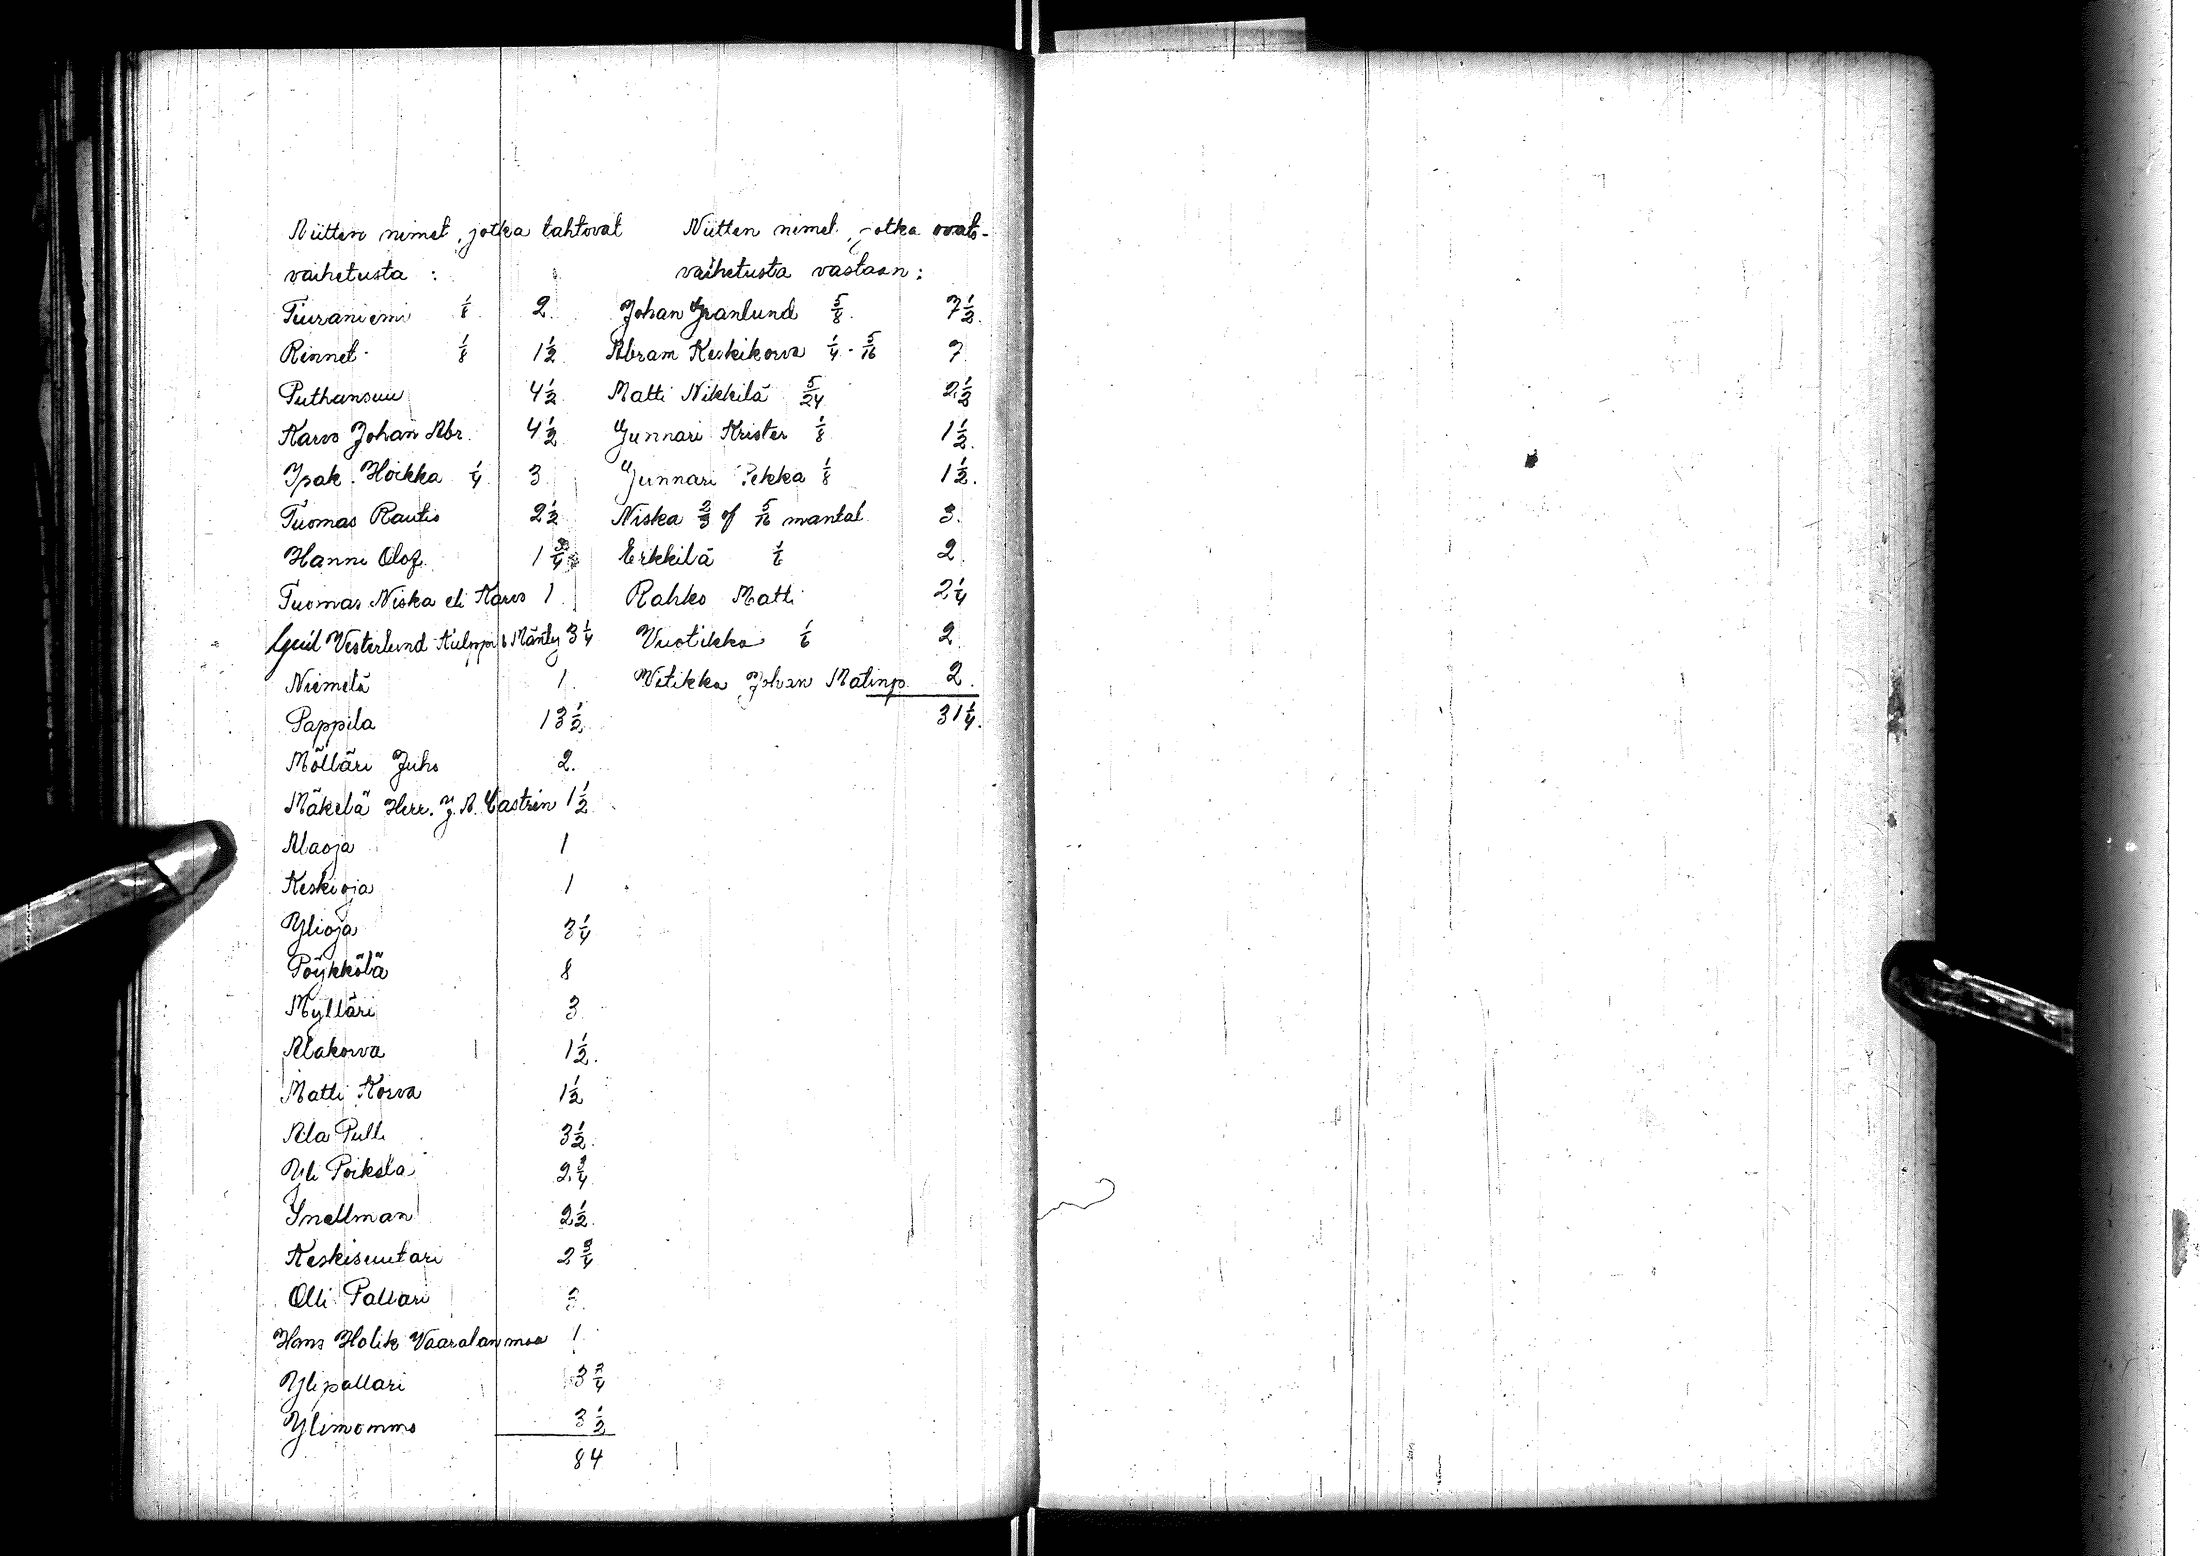 Niitten nimet, jotka tahtovat
vaihetusta :
Tiuraniemi 1/8 2.
Rinnet 1/8 1 1/2
Puthansuu 4 1/2
Karvo Johan Abr. 4 1/2
Isak Hoikka 1/4 3
Tuomas Rautio 2 1/2
Hanni Olof 1 3/4
Tuomas Niska eli Karvo 1
Vesterlund Mänty 3 1/4
Niemelä 1.
Pappila 13 1/2
Mölläri Juho 2.
Mäkelä Herr. J. A. Castrin 1 1/2
Alaoja 1
Keskioja 1
Ylioja 3/4
Pöykkölä 8
Mylläri 3
Alakorva 1 1/2.
Matti Korva 1 1/2
Ala Pulli 3 1/2.
Yli Poikela 2 3/4
Snellman 2 1/2.
Keskisuutari 2 3/4
Olli Pallari 3.
Hans Holik Vaaralanmaa 1.
Ylipallari 3 3/4
Ylimommo 3 1/2
84
Niitten nimet, jotka ovat
vaihetusta vastaan :
Johan Granlund 5/8. 7 1/2.
Abram Keskikorva 1/4 - 5/16 7
Matti Nikkilä 5/24 2 1/2
Gunnari Krister 1/8 1 1/2.
Gunnari Pekka 1/8 1 1/2.
Niska 2/3 of 5/16 mantal 3.
Erkkilä 1/6 2.
Rahko Matti 2 1/4
Vuotikka 1/6 2
Vitikka Johan Matinp. 2.
31 1/4.